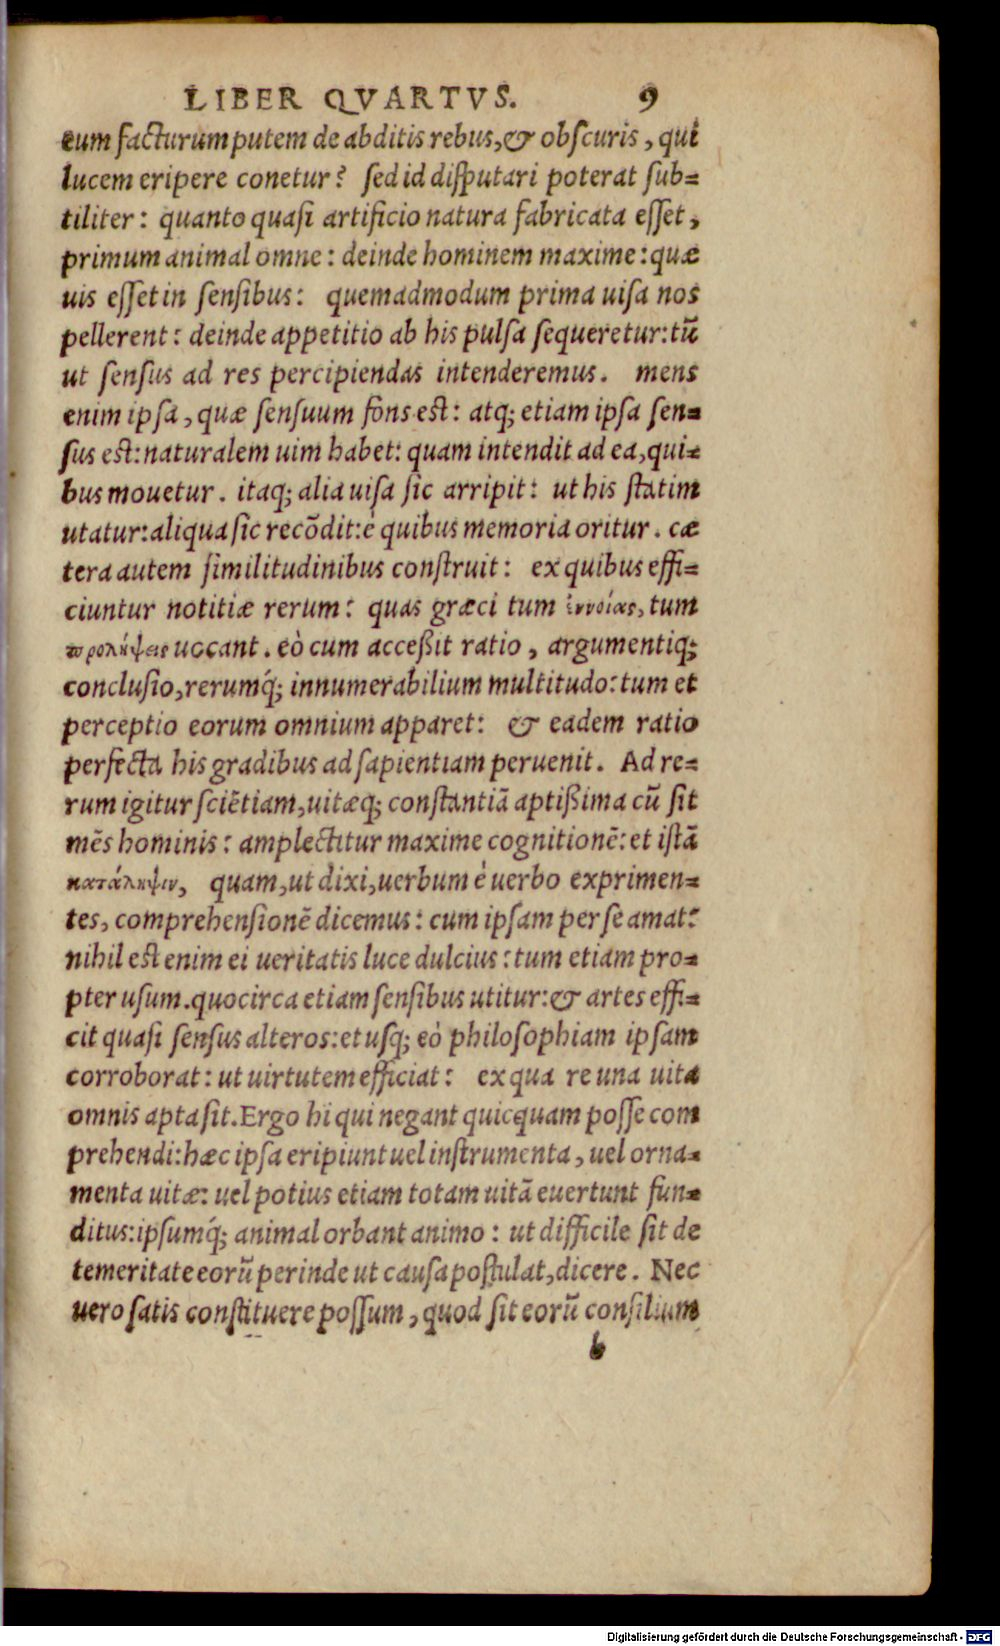 LIBER QVARTVS. 9
eum facturum putem de abditis rebus, & obscuris, qui
lucem eripere conetur? sed id disputari poterat sub=
tiliter: quanto quasi artificio natura fabricata esset,
primum animal omne: deinde hominem maxime: quæ
uis esset in sensibus: quemadmodum prima uisa nos
pellerent: deinde appetitio ab his pulsa sequeretur: tū
ut sensus ad res percipiendas intenderemus. mens
enim ipsa, quæ sensuum fons est: atq; etiam ipsa sen=
sus est: naturalem uim habet: quam intendit ad ea, qui=
bus mouetur. itaq; alia uisa sic arripit: ut his statim
utatur: aliqua sic recōdit: è quibus memoria oritur. cæ
tera autem similitudinibus construit: ex quibus effi=
ciuntur notitiæ rerum: quas græci tum ἐννοίας, tum
προλήψεις uocant. eò cum acceßit ratio, argumentiq;
conclusio, rerumq́; innumerabilium multitudo: tum et
perceptio eorum omnium apparet: & eadem ratio
perfecta his gradibus ad sapientiam peruenit. Ad re=
rum igitur sciētiam, uitæq; constantiā aptißima cū sit
mēs hominis: amplectitur maxime cognitionē: et istā
κατάληψιν, quam, ut dixi, uerbum è uerbo exprimen=
tes, comprehensionē dicemus: cum ipsam per se amat:
nihil est enim ei ueritatis luce dulcius: tum etiam pro=
pter usum. quocirca etiam sensibus utitur: & artes effi=
cit quasi sensus alteros: et usq; eò philosophiam ipsam
corroborat: ut uirtutem efficiat: ex qua re una uita
omnis apta sit. Ergo hi qui negant quicquam posse com
prehendi: hæc ipsa eripiunt uel instrumenta, uel orna=
menta uitæ: uel potius etiam totam uitā euertunt fun=
ditus: ipsumq́; animal orbant animo: ut difficile sit de
temeritate eorū perinde ut causa postulat, dicere. Nec
uero satis constituere possum, quod sit eorū consilium
b
Digitalisierung gefördert durch die Deutsche Forschungsgemeinschaft - DFG